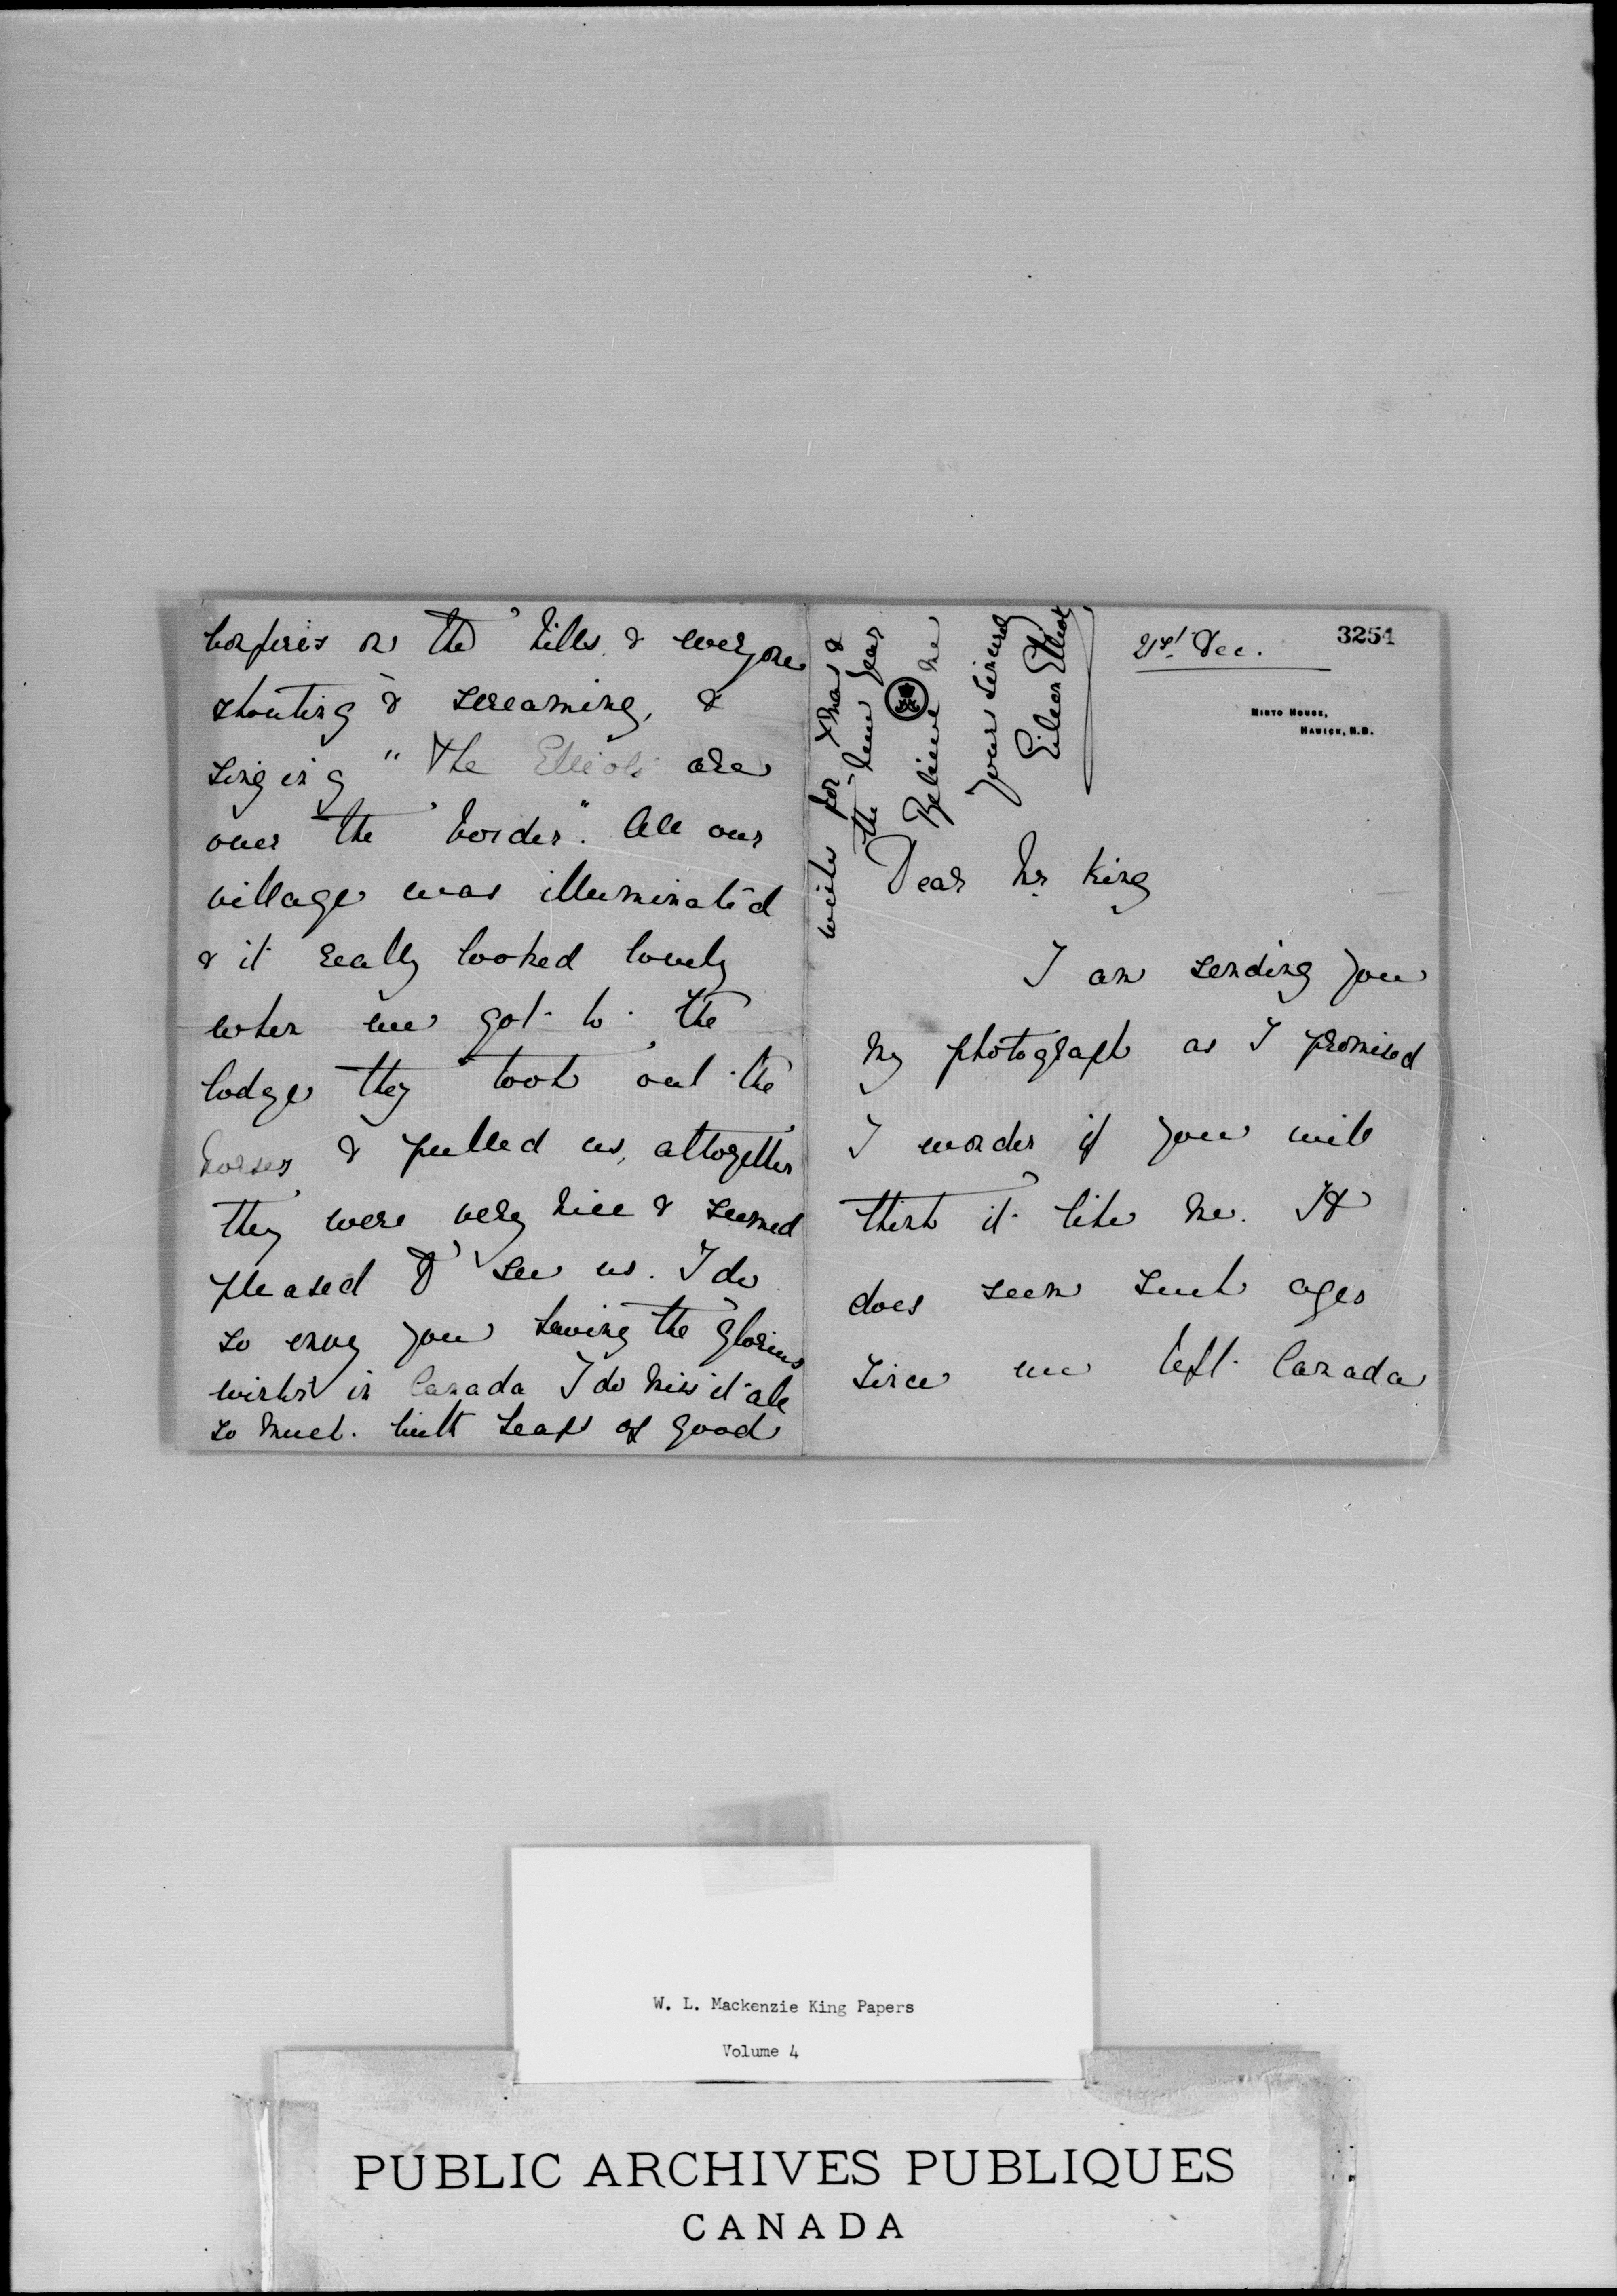 bonfires on the hills, & everyone
shouting & screaming, &
singing "The Elliots are
over the border". All our
village was illuminated
& it really looked lovely
when we got to the
lodge they took out the
horses & pulled us, altogether
they were very nice & seemed
pleased to see us. I do
so envy you having the glorious
winter in Canada I do miss it all
so much. With heaps of good
wishes for Xmas &
the New Year
Believe me
Yours sincerely
Eileen Elliot
21st Dec.
3254
MINTO HOUSE,
HAWICK, N.B.
Dear Mr King
I am sending you
my photograph as I promised
I wonder if you will
think it like me. It
does seem such ages
since we left Canada
W. L. Mackenzie King Papers
Volume 4
PUBLIC ARCHIVES PUBLIQUES
CANADA